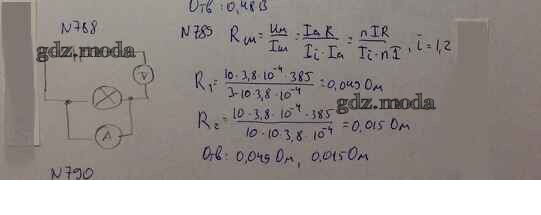 Отв: 0,48 В
N788
N789 Rш = Uш/Iш = IaR/(Ii - Ia) = nIR/(Ii - nI), i = 1,2
gdz.moda
V
R1 = 10·3,8·10⁻⁴·385/(3-10·3,8·10⁻⁴) = 0,049 Ом
A
gdz.moda
R2 = 10·3,8·10⁻⁴·385/(10-10·3,8·10⁻⁴) = 0,015 Ом
Отв: 0,049 Ом, 0,015 Ом
N790